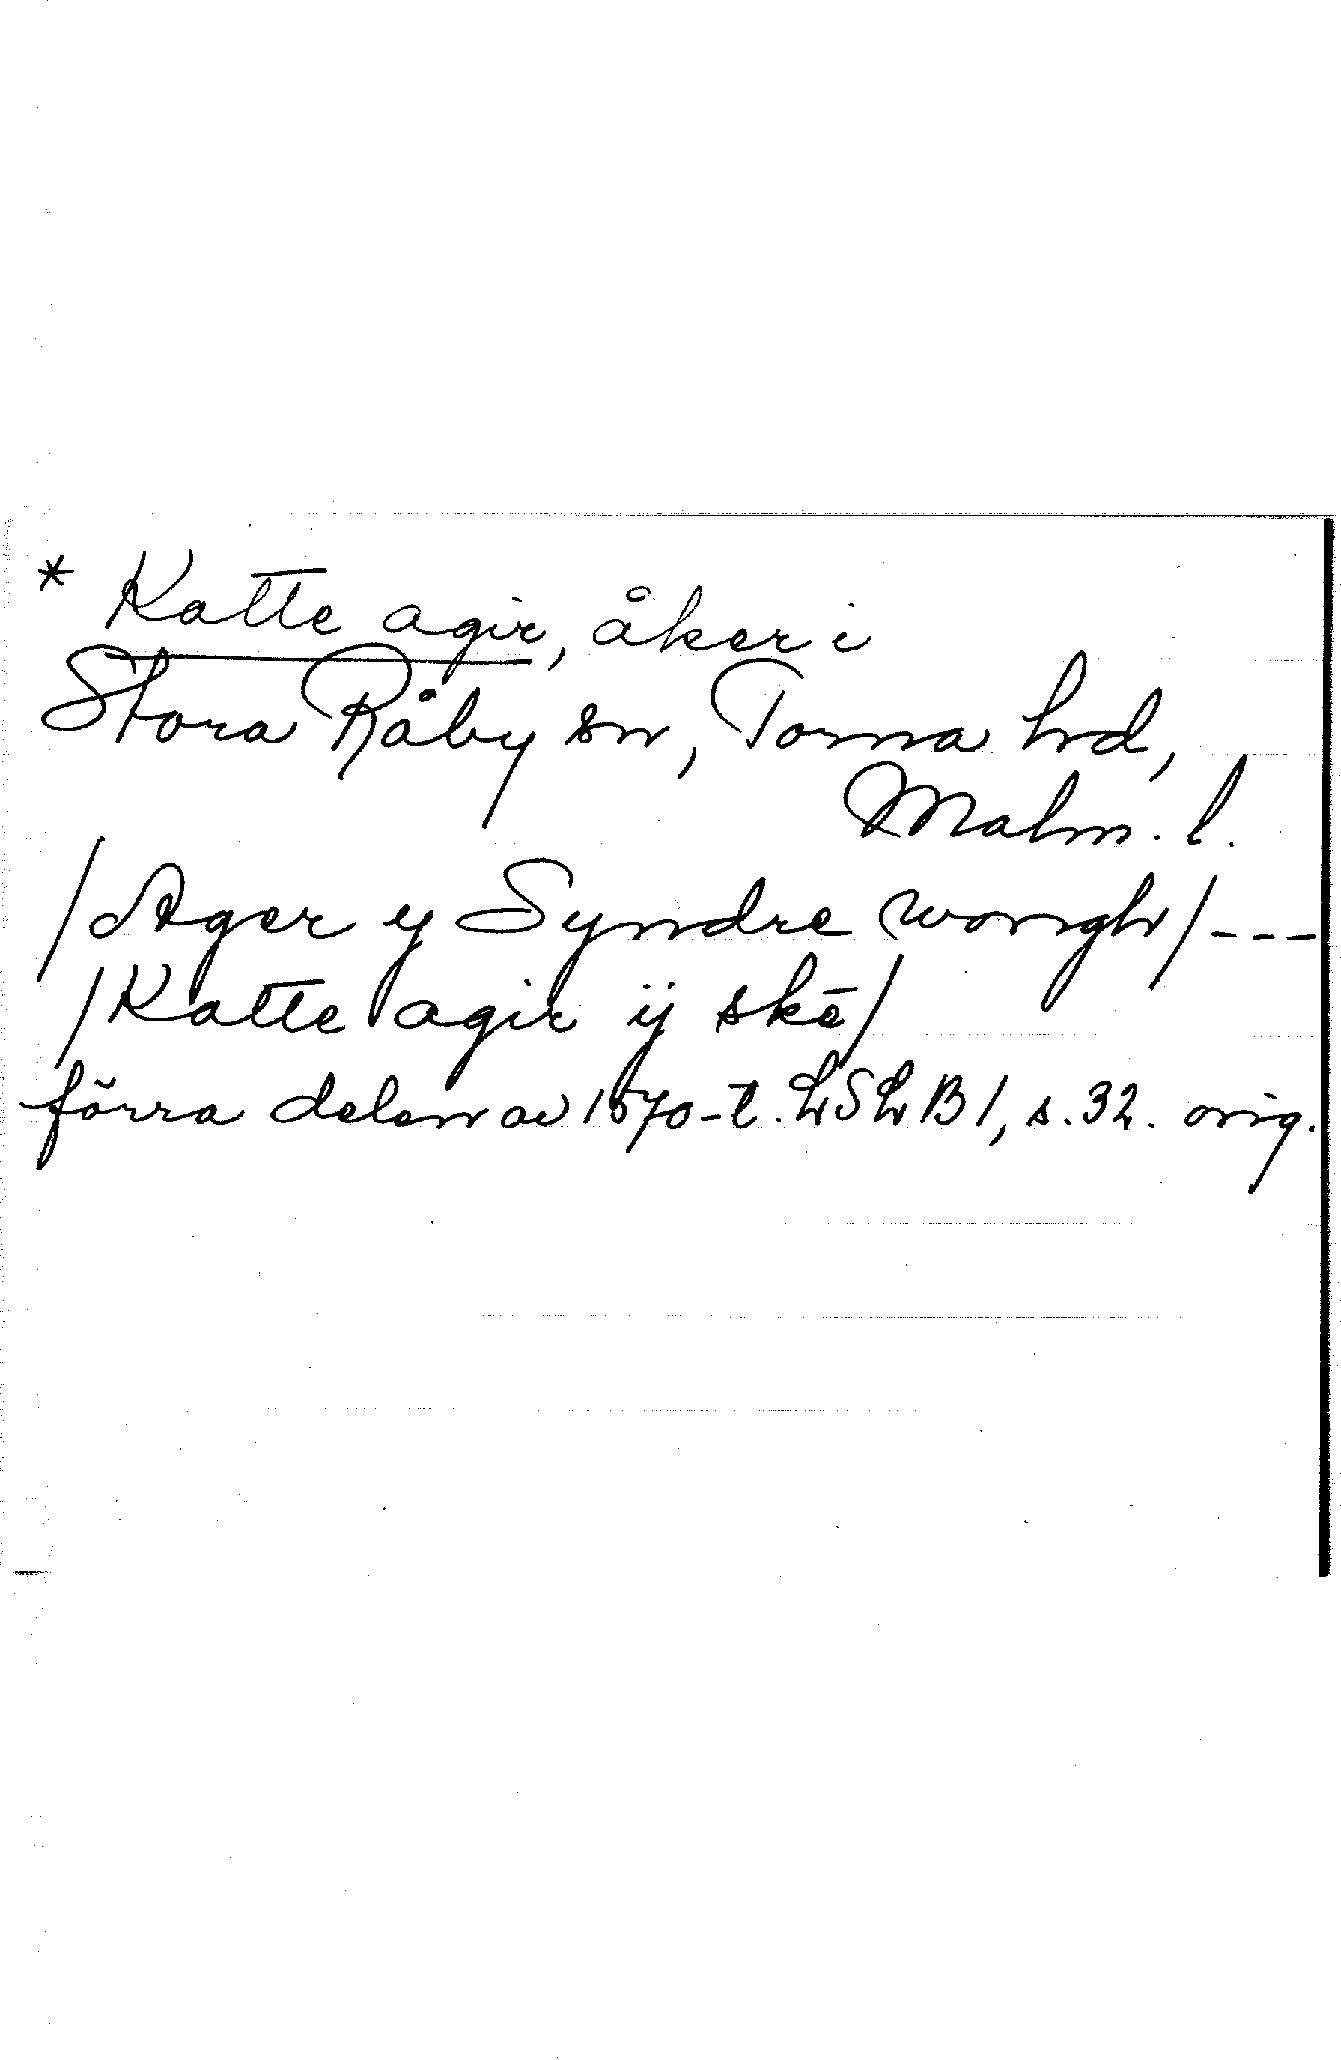 * Katte agir, åker i
Stora Råby sn, Torna hd,
Malm. l.
/Ager y Syndre wongh/ ---
/Katte agir ij skē/
förra delen av 1570-t. LSLB 1, s. 32. orig.